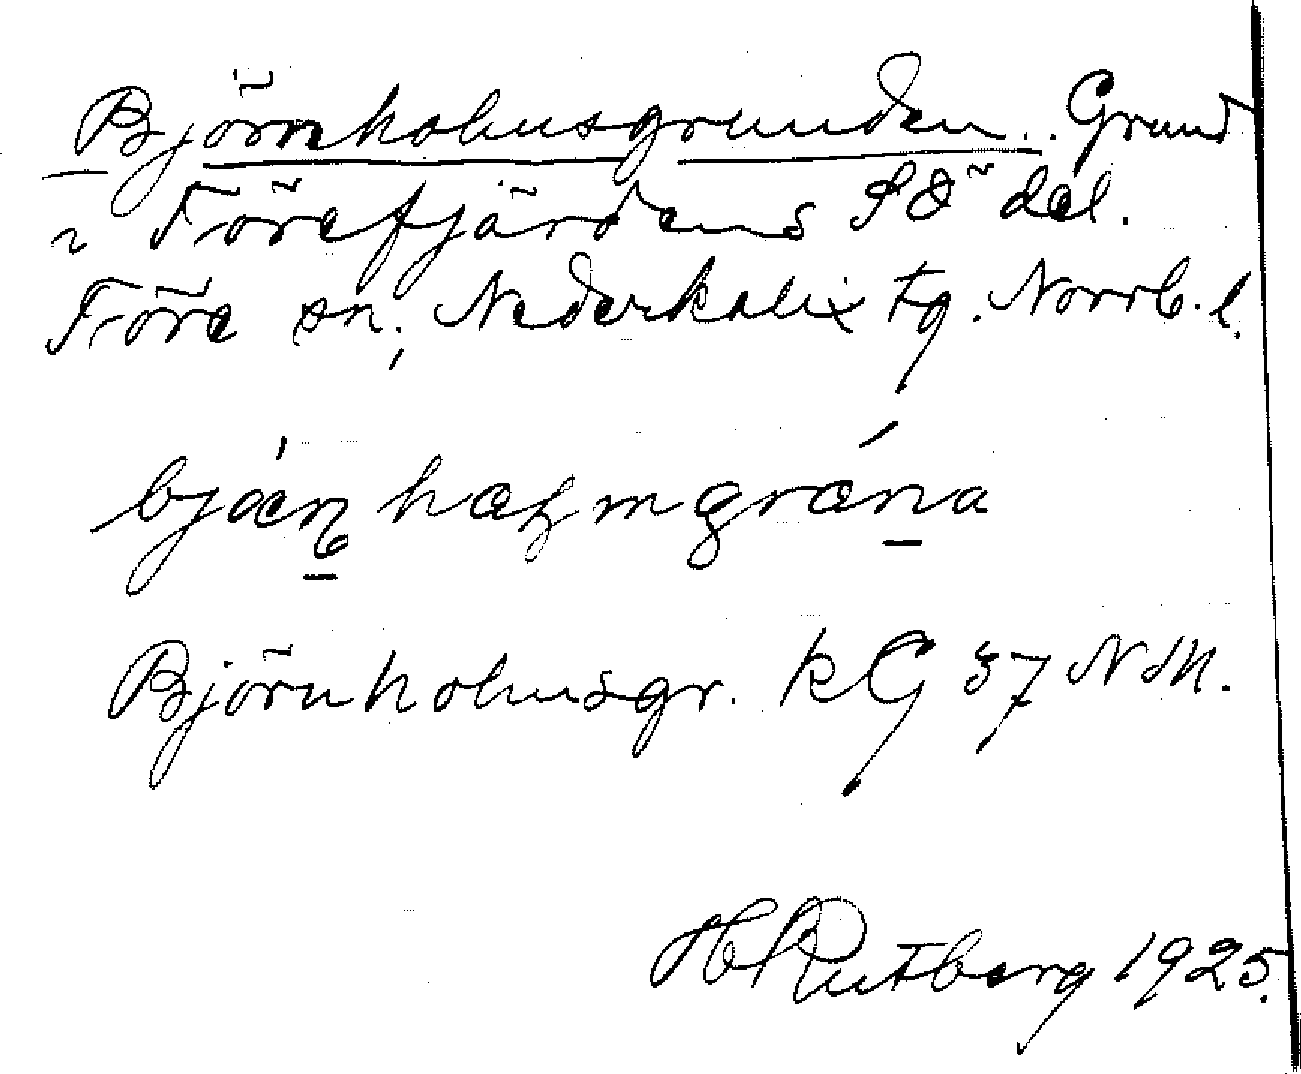 Björnholmsgrunden. Grund
i Törefjärdens SÖ del.
Töre sn, Nederkalix tg. Norrb. l.
Björnholmsgr. kG 37 NM.
H Rutberg 1925.